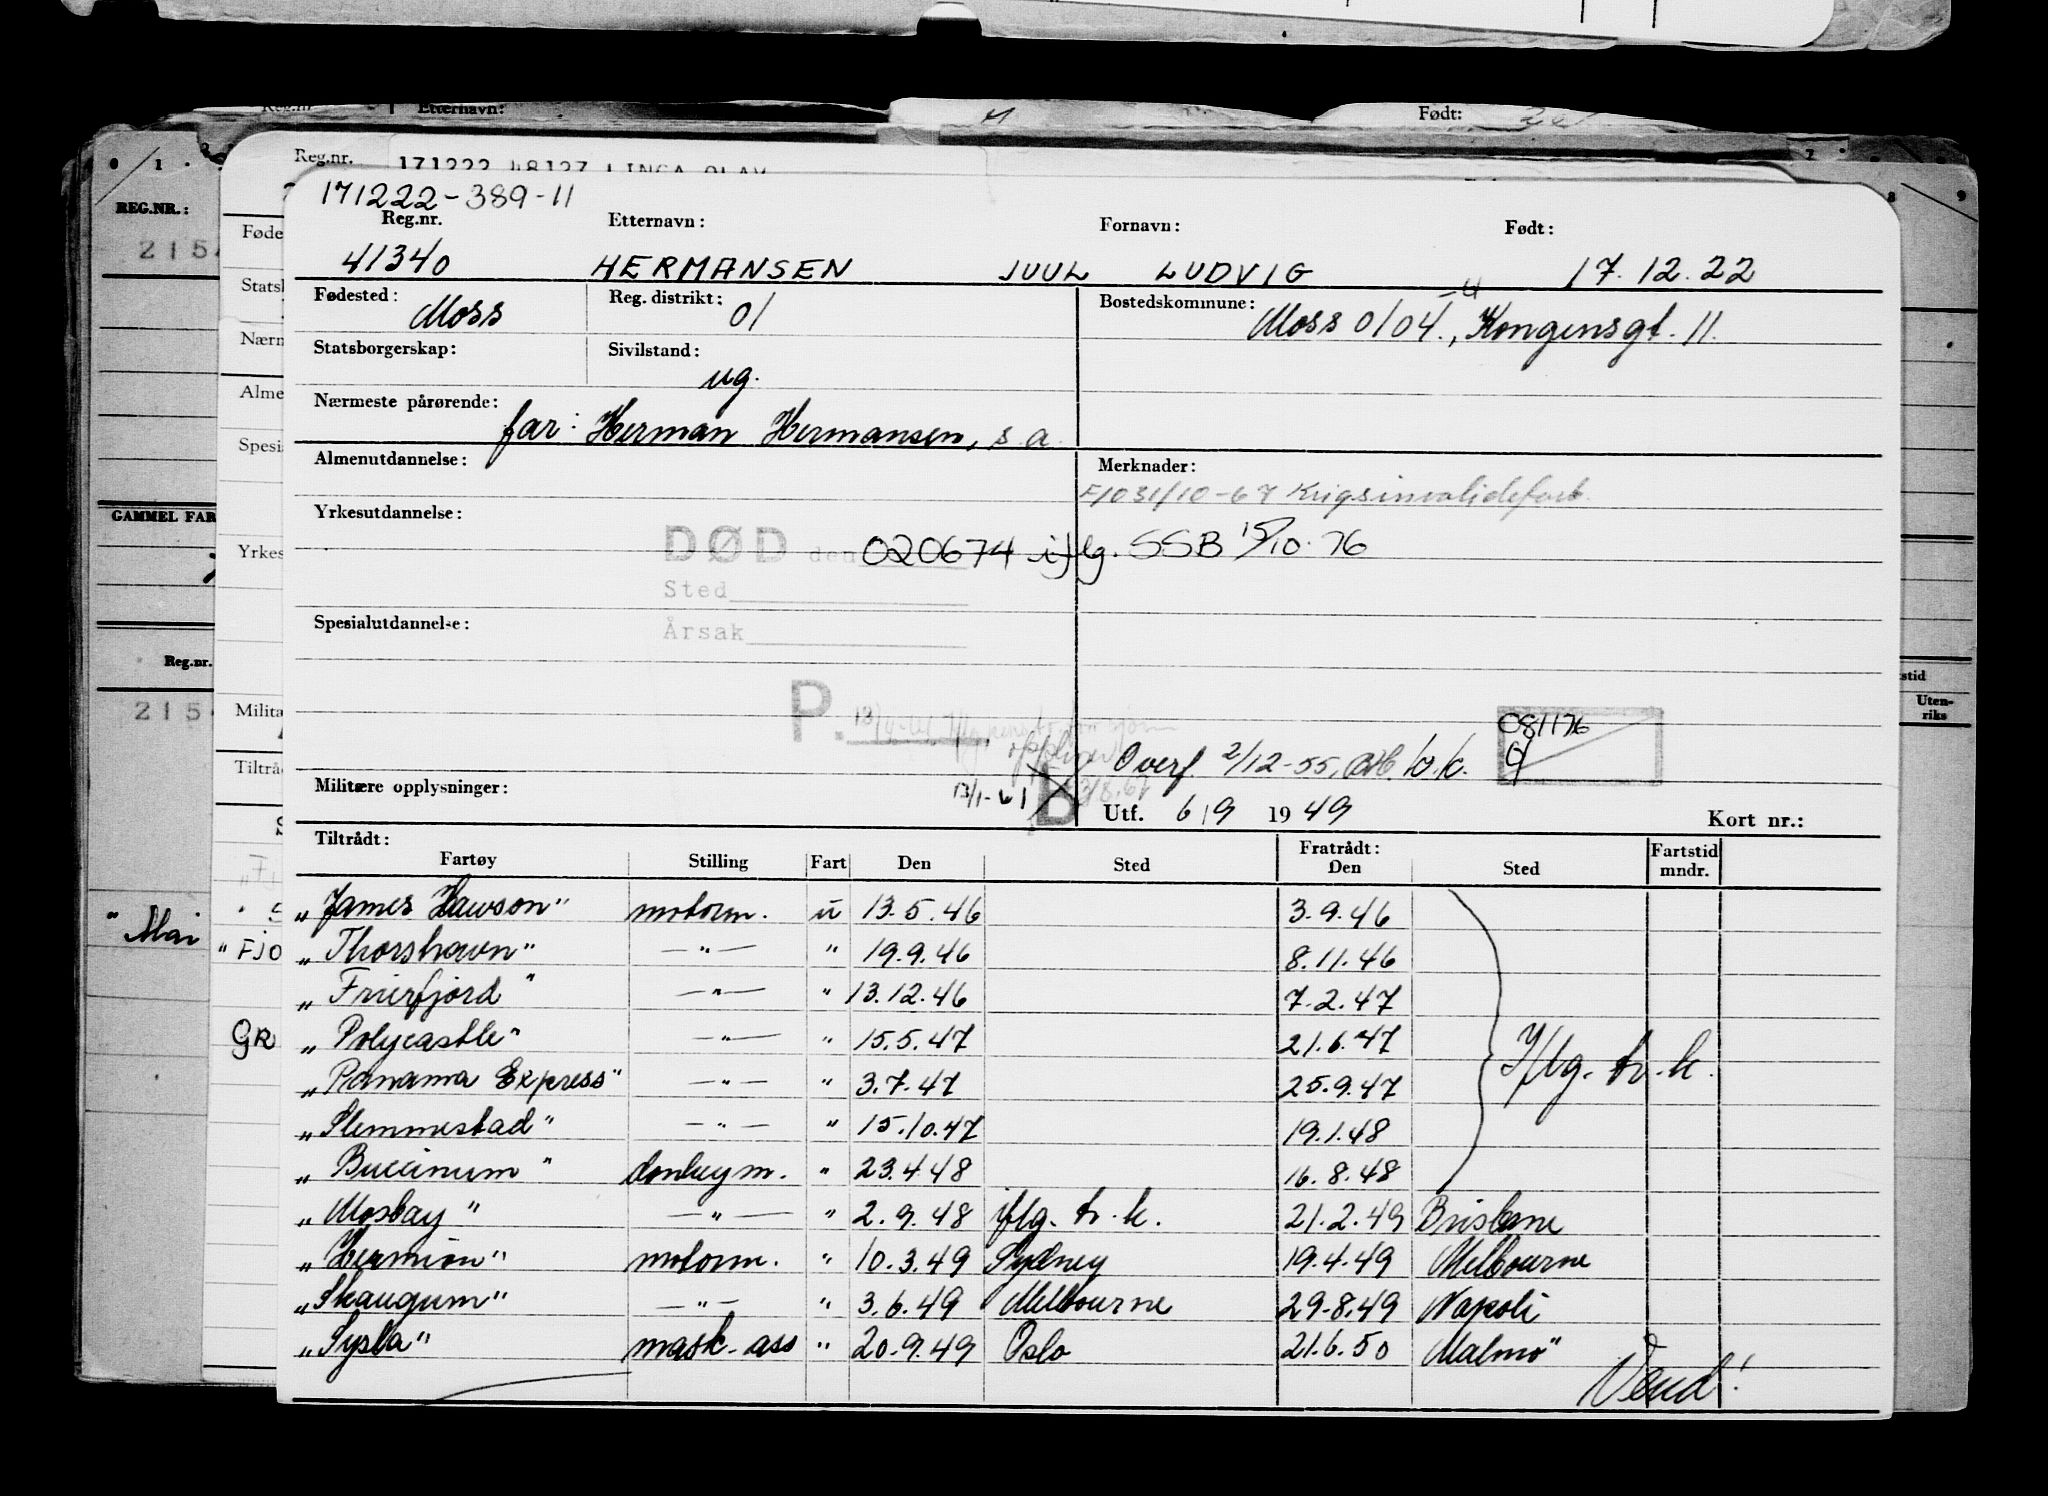 Reg.nr.
Etternavn:
Født:
REG.NR.:
215
GAMMEL FAR
Reg.nr.
215
"Mai
Reg.nr. 171222 48127 LINGA OLAV
Føde
Stats
Nærn
Alme
Spesi
Yrkes
Milita
Tiltråd
"FJO
GR
stid
Uten-
riks
171222-389-11
Reg.nr. Etternavn: Fornavn: Født:
41340 HERMANSEN JUUL LUDVIG 17.12.22
Fødested: Moss Reg. distrikt: 01 Bostedskommune: Moss 0104, Kongensgt. 11.
Statsborgerskap: Sivilstand: ug.
Nærmeste pårørende: far: Herman Hermansen, s.a.
Almenutdannelse: Merknader:
31/10-67 Krigsinvalidefork.
Yrkesutdannelse:
DØD den 020674 iflg. SSB 15/10.76
Sted
Spesialutdannelse: Årsak
P.
081176
Overf. 2/12-55, b.k.
Militære opplysninger: 13/1-61 D Utf. 6/9 1949 Kort nr.:
Tiltrådt: Fratrådt: Fartstid
Fartøy Stilling Fart Den Sted Den Sted mndr.
"James Hawson" motorm. u 13.5.46 3.9.46
"Thorshavn" —"— " 19.9.46 8.11.46
"Frierfjord" —"— " 13.12.46 7.2.47
"Polycastle" —"— " 15.5.47 21.6.47 Iflg. tr.k.
"Panama Express" —"— " 3.7.47 25.9.47
"Slemmestad" —"— " 15.10.47 19.1.48
"Buccinum" donkeym. " 23.4.48 16.8.48
"Mosbay" —"— " 2.9.48 iflg. tr.k. 21.2.49 Brisbane
"Hermion" motorm. " 10.3.49 Sydney 19.4.49 Melbourne
"Skaugum" —"— " 3.6.49 Melbourne 29.8.49 Napoli
"Sysla" mask.ass " 20.9.49 Oslo 21.6.50 Malmö
Vend!